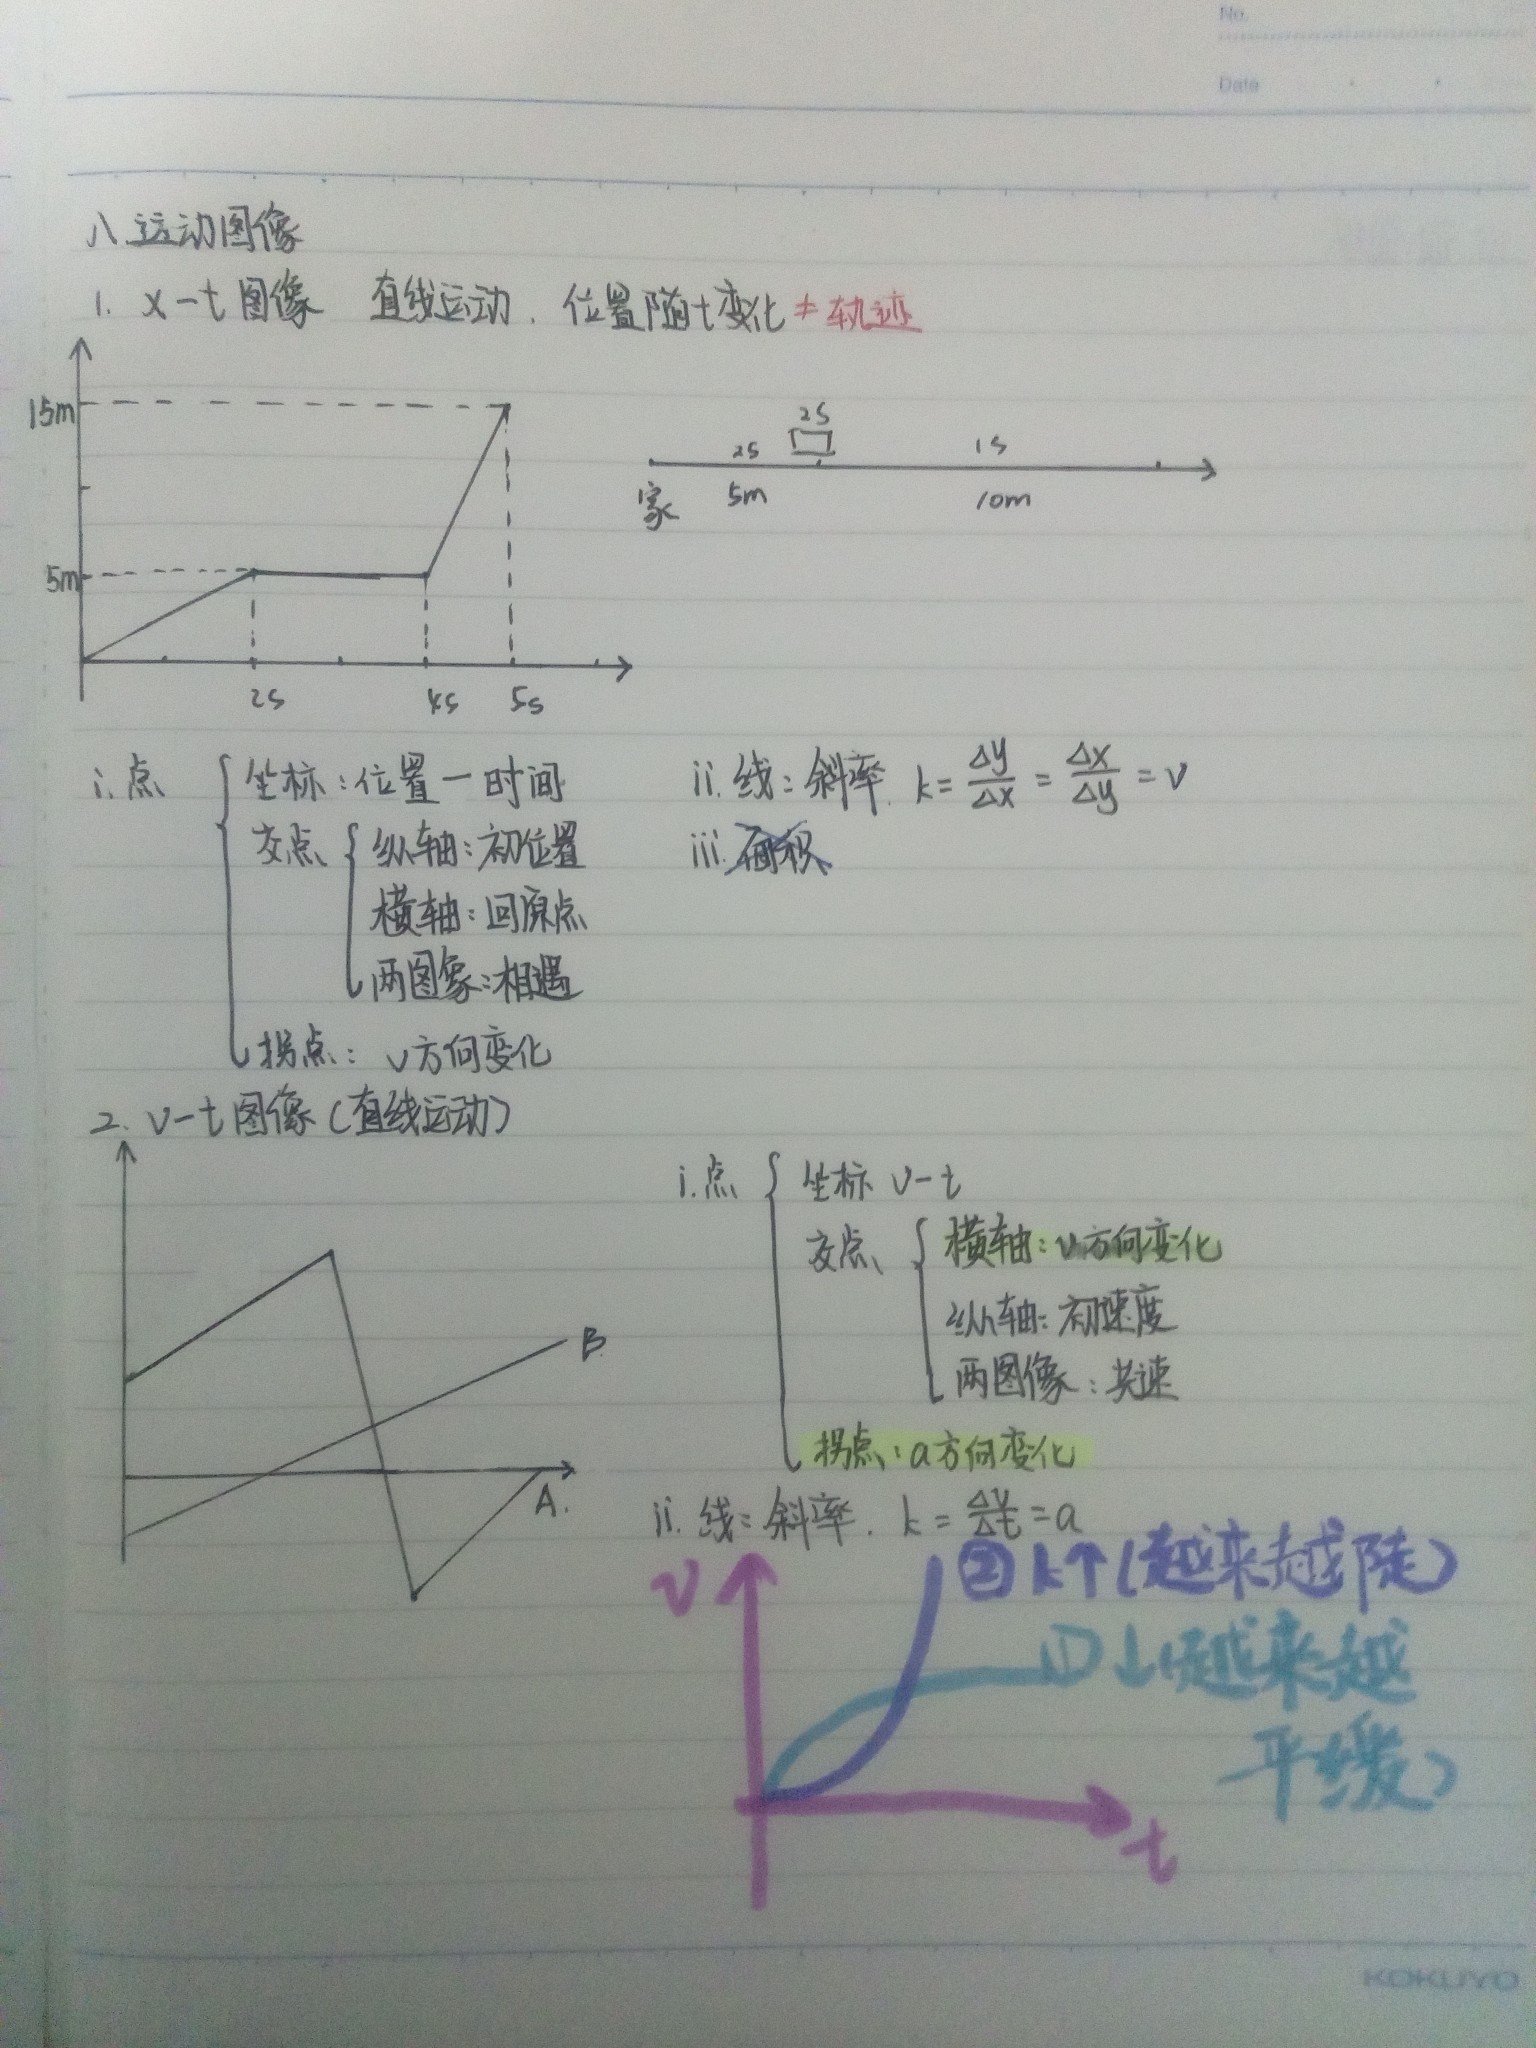 No.
Date
八.运动图像
1. x-t图像 直线运动. 位置随t变化≠轨迹
15m
5m
2s
4s
5s
2s
2s
1s
家
5m
10m
i.点
坐标:位置一时间
交点
纵轴:初位置
横轴:回原点
两图象:相遇
拐点: v方向变化
ii.线:斜率. k=Δy/Δx=Δx/Δy=v
iii.面积
2. v-t图像(直线运动)
B
A.
i.点
坐标 v-t
交点
横轴:v方向变化
纵轴:初速度
两图像:共速
拐点:a方向变化
ii.线:斜率. k=Δv/Δt=a
v
②k↑(越来越陡)
①↓(越来越
平缓)
t
KOKUYO